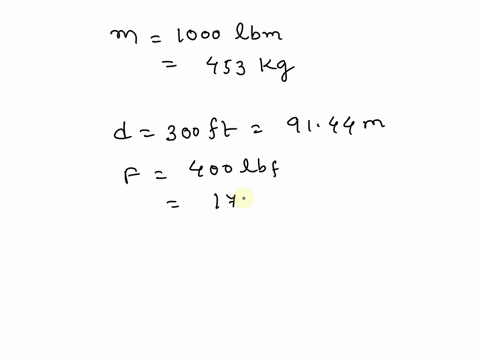 m = 1000 lbm
= 453 kg
d = 300 ft = 91.44 m
F = 400 lbf
= 17